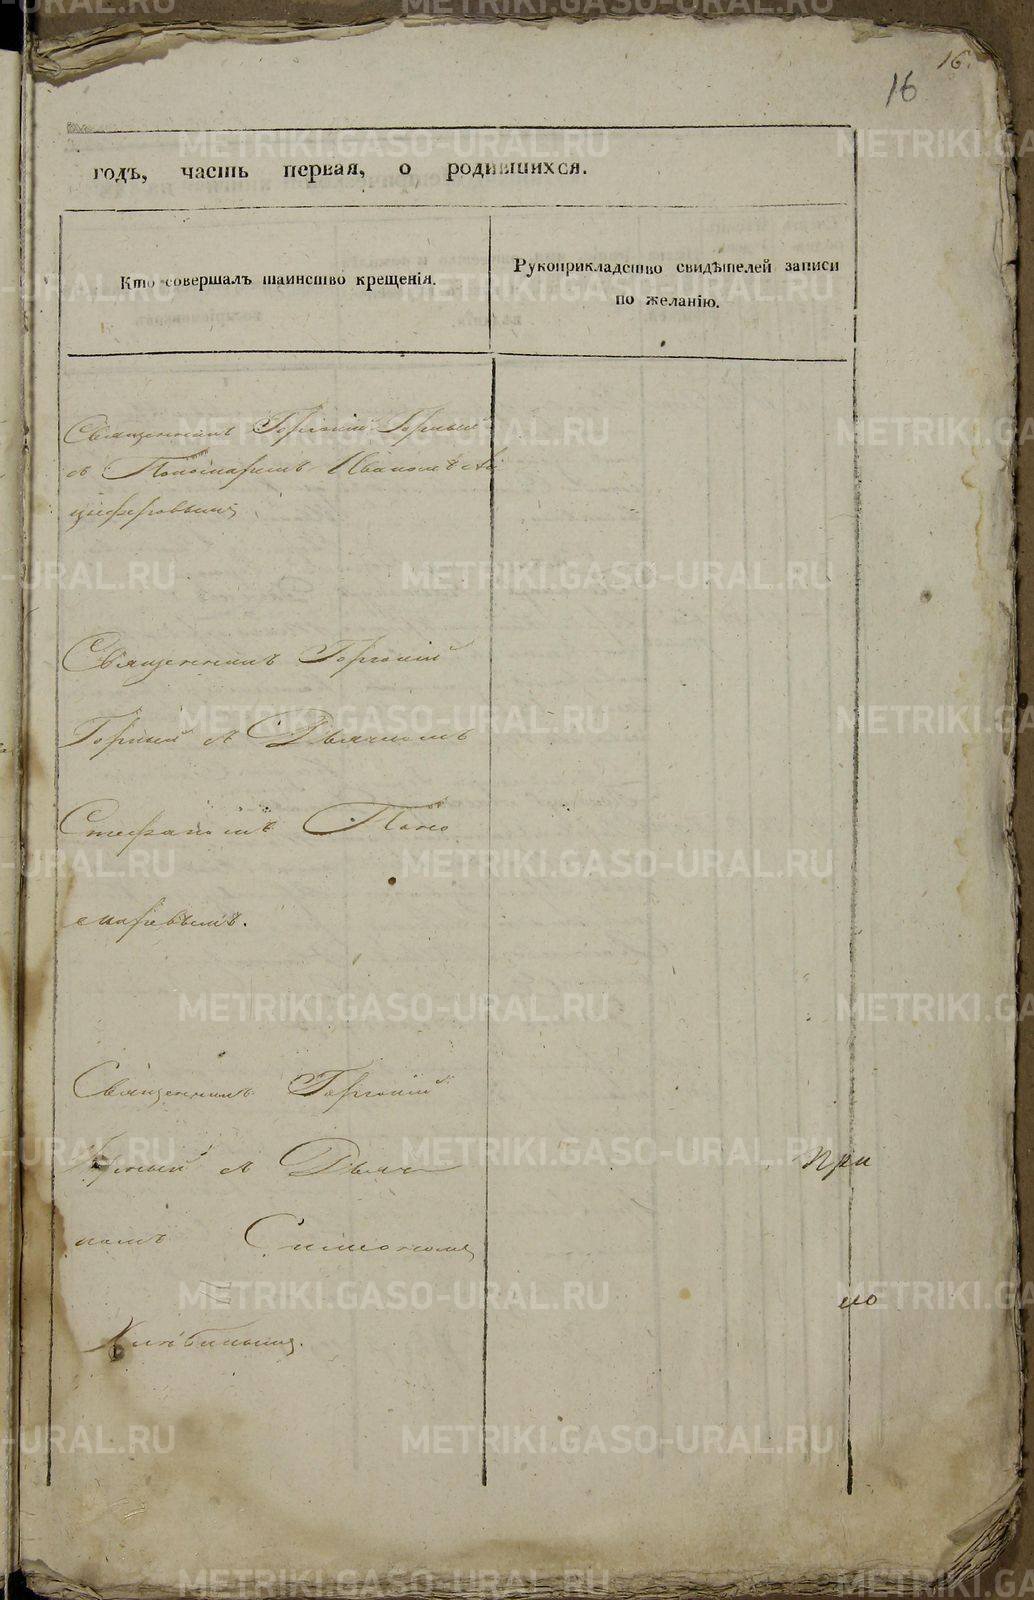 16.
16
годъ, часть первая, о родившихся.
Кто совершалъ таинство крещенія.
Рукоприкладство свидѣтелей записи
по желанію.
Священникъ Горгоній Горный
съ Пономаремъ Иваномъ Ан
циферовымъ
Священникъ Горгоній
Горный съ Дьячкомъ
Стефаномъ Поно
маревымъ.
Священникъ Горгоній
Горный съ Дьяч
комъ Симеономъ
При
мо
METRIKI.GASO-URAL.RU